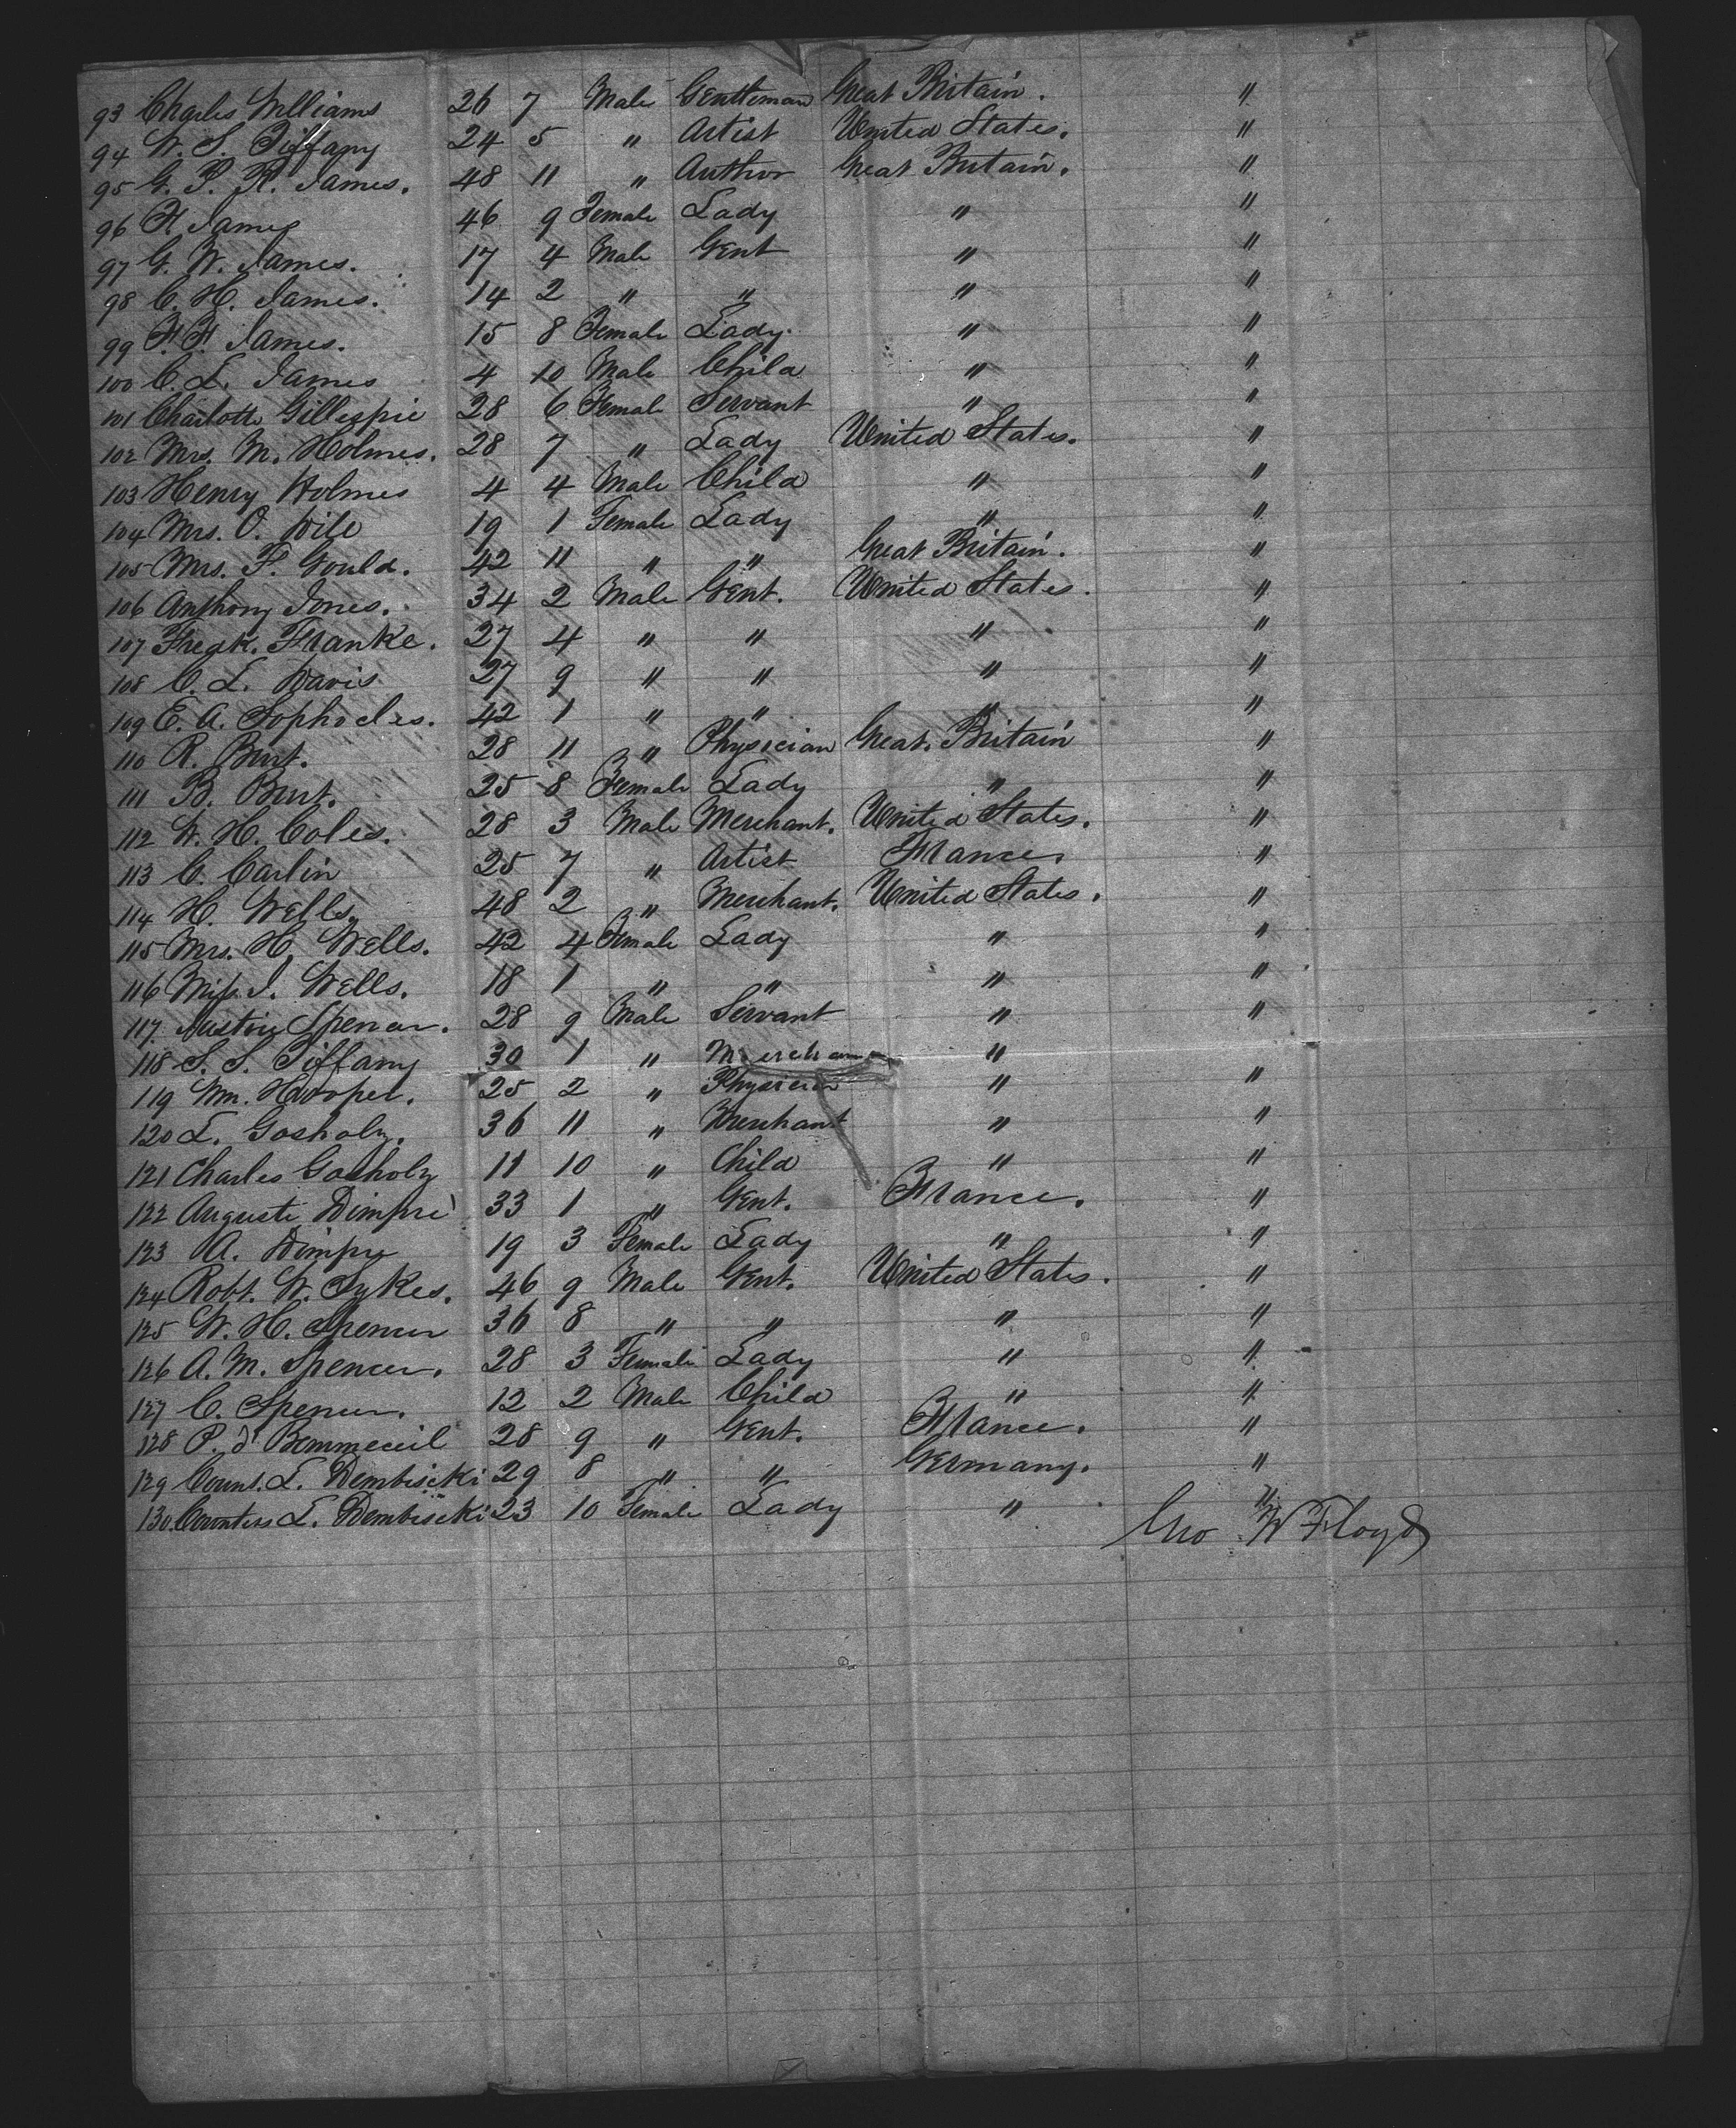 93 Charles Williams 26 7 Male Gentleman Great Britain. "
94 W. S. Tiffany 24 5 " Artist United States. "
95 G. P. R. James. 48 11 " Author Great Britain. "
96 F. James 46 9 Female Lady " "
97 G. W. James. 17 4 Male Gent " "
98 C. H. James. 14 2 " " " "
99 F. F. James. 15 8 Female Lady. " "
100 C. L. James 4 10 Male Child " "
101 Charlotte Gillespie 28 6 Female Servant " "
102 Mrs. M. Holmes. 28 7 " Lady United States. "
103 Henry Holmes 4 4 Male Child " "
104 Mrs. O. 19 1 Female Lady " "
105 Mrs. F. Gould. 42 11 " " Great Britain. "
106 Anthony Jones. 34 2 Male Gent. United States. "
107 Fredk. Franke. 27 4 " " " "
108 C. L. Davis 27 9 " " " "
109 E. A. Sophocles. 42 1 " " " "
110 R. Burt. 28 11 " Physician Great Britain "
111 B. Burt. 25 8 Female Lady " "
112 W. H. Coles. 28 3 Male Merchant. United States. "
113 C. Carlin 25 7 " Artist France. "
114 H. Wells. 48 2 " Merchant. United States. "
115 Mrs. H. Wells. 42 4 Female Lady " "
116 Miss. J. Wells. 18 1 " " " "
117 Spencer. 28 9 Male Servant " "
118 S. S. Tiffany 30 1 " Merchant "
119 Wm. Hooper. 25 2 " Physician " "
120 L. Gosholz. 36 11 " Merchant " "
121 Charles Gosholz 11 10 " Child " "
122 Auguste Dimpré 33 1 " Gent. France. "
123 A. Dimpre 19 3 Female Lady " "
124 Robt. W. Sykes. 46 9 Male Gent. United States. "
125 W. H. Spencer 36 8 " " " "
126 A. M. Spencer. 28 3 Female Lady " "
127 C. Spencer. 12 2 Male Child " "
128 P. d' 28 9 " Gent. France. "
129 Count. L. Dembiscki 29 8 " " Germany. "
130. Countess L. Dembiscki 23 10 Female Lady " "
Geo W Floyd